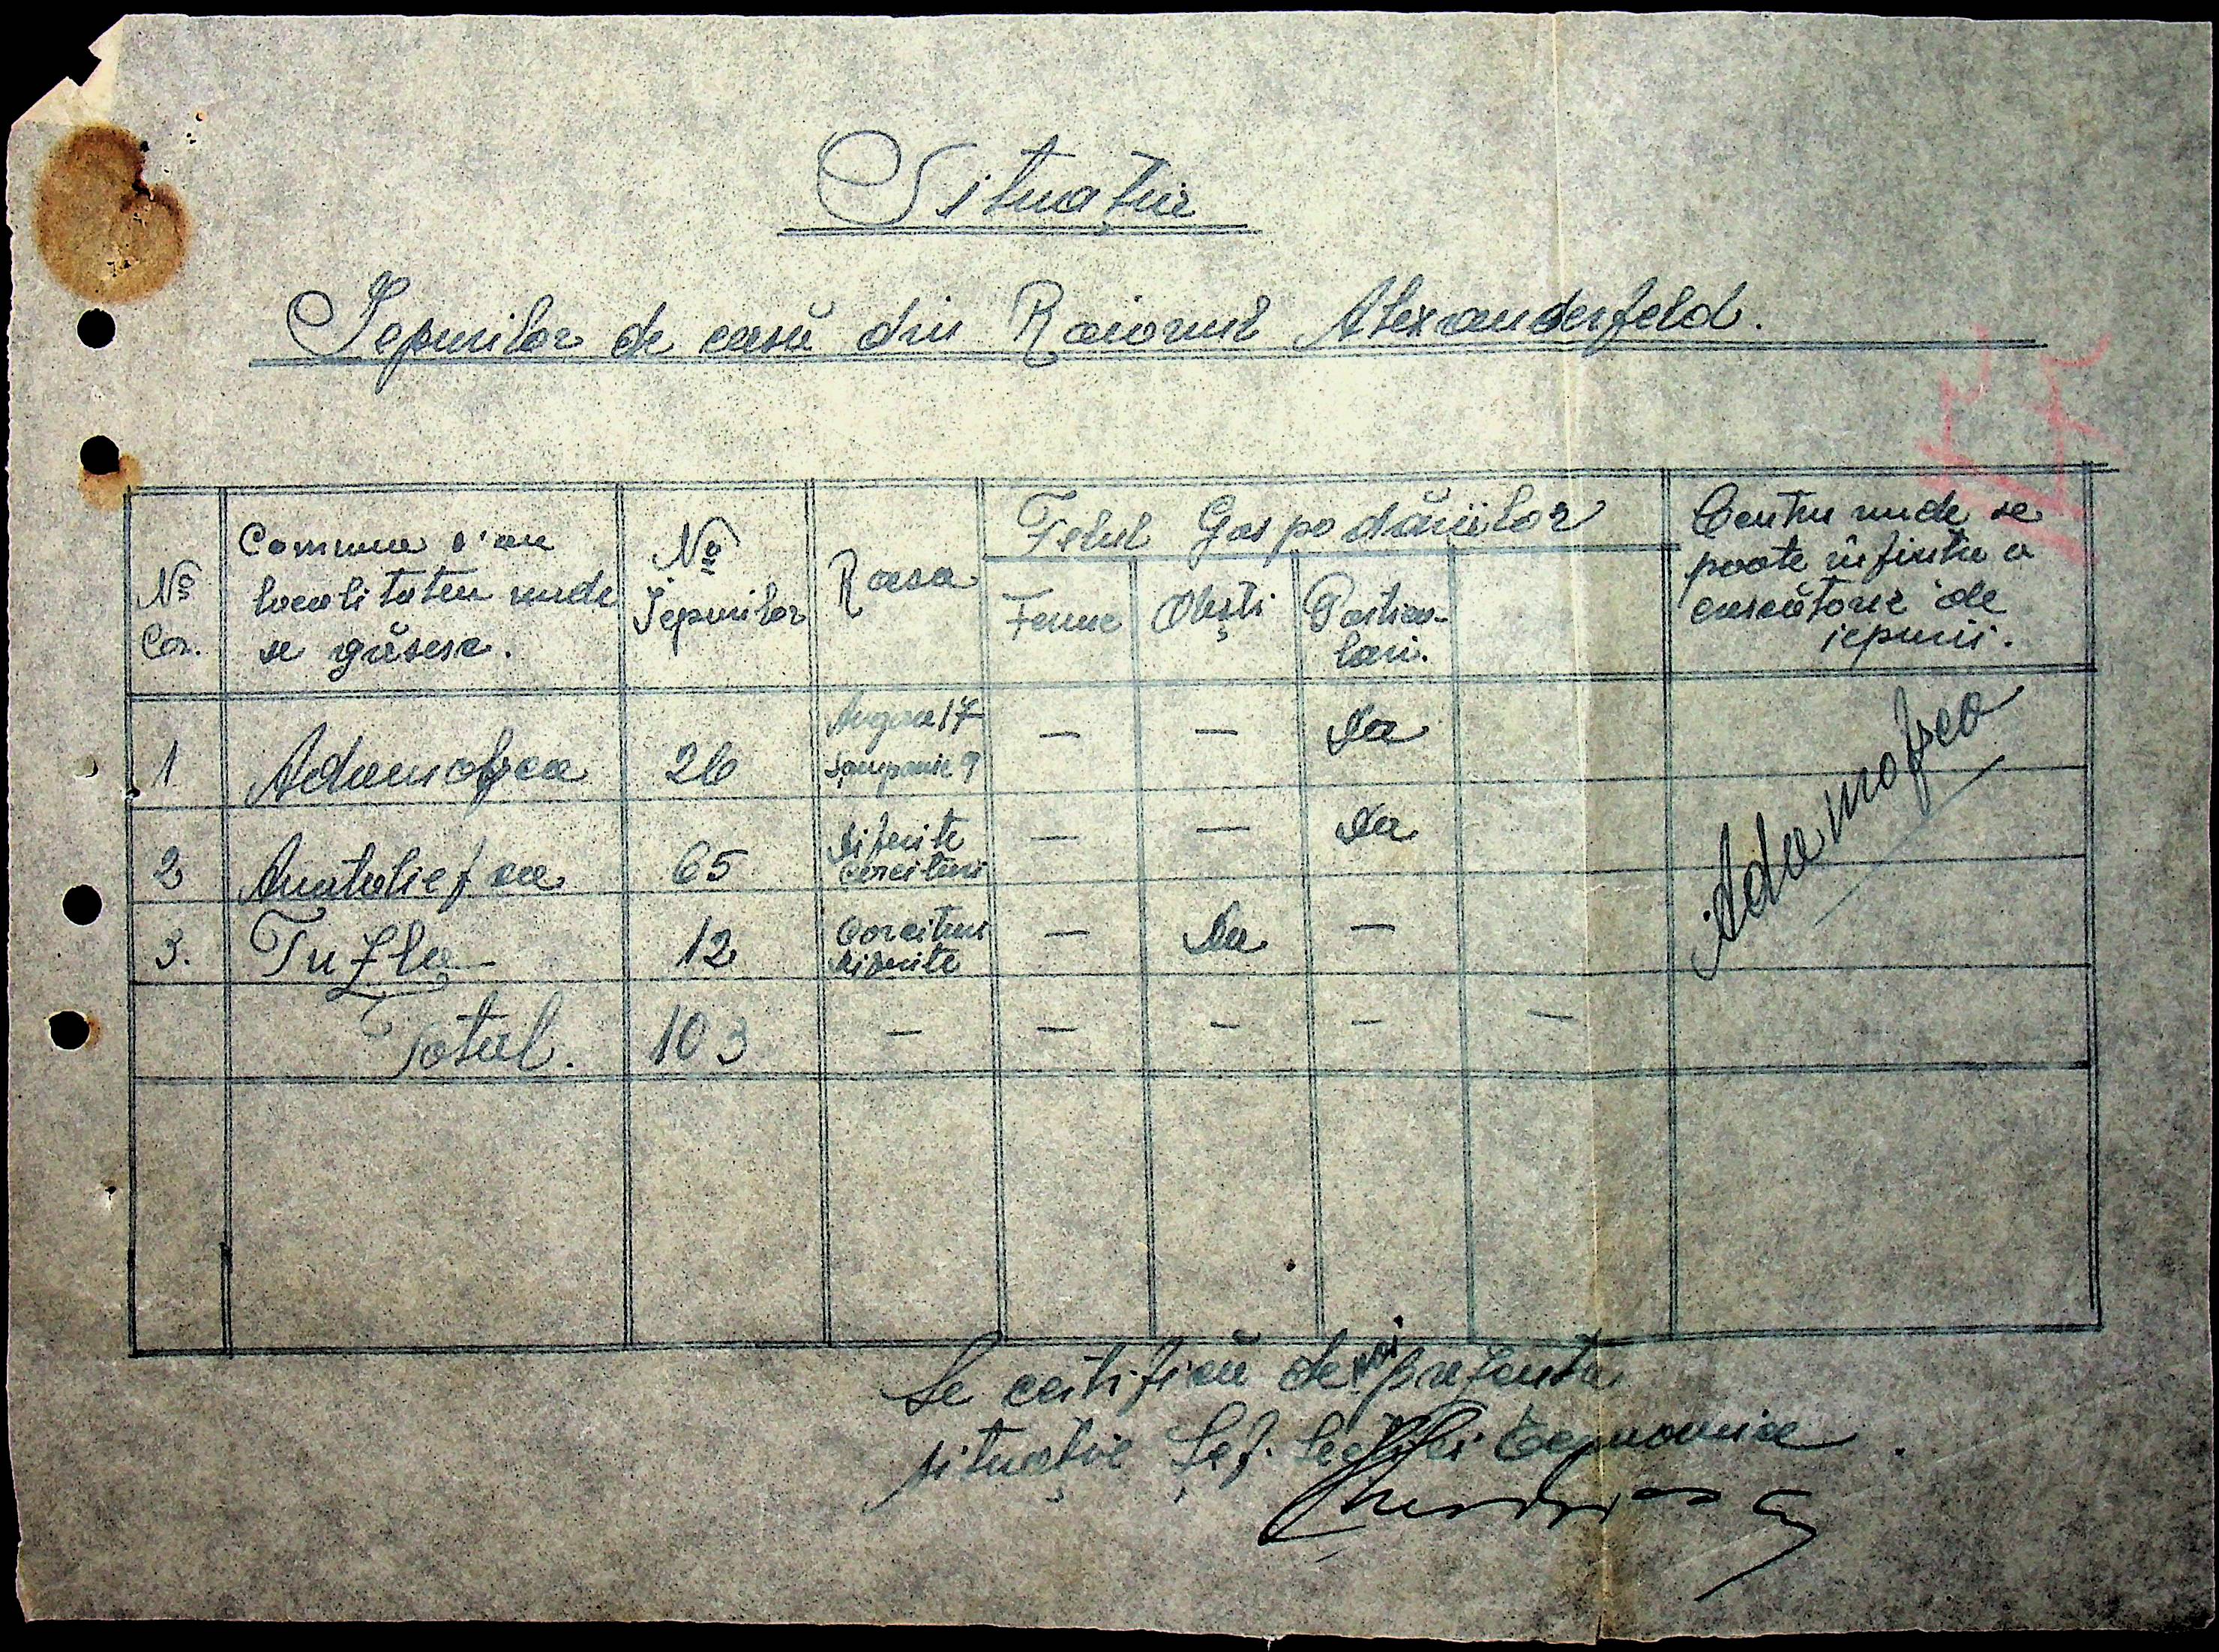 Situație
Iepurilor de casă din Raionul Alexanderfeld.
No Cor.
Comuna s'au
localitatea unde
se găsesc.
No
Iepurilor
Rasa
Felul Gospodăriilor
Ferme
Obști
Particu-
lari.
Centru unde se
poate înființa o
crescătorie de
iepurii.
1 Adamofca 26 Angora 17 — — Da
Șampanie 9
2 Anatoliefca 65 diferite corcituri — — Da
3. Tuzla 12 Corcituri diferite — Da —
Adamofca
Total. 103 — — — — —
Se certifică de noi prezenta
situație Șef. Secției Economice